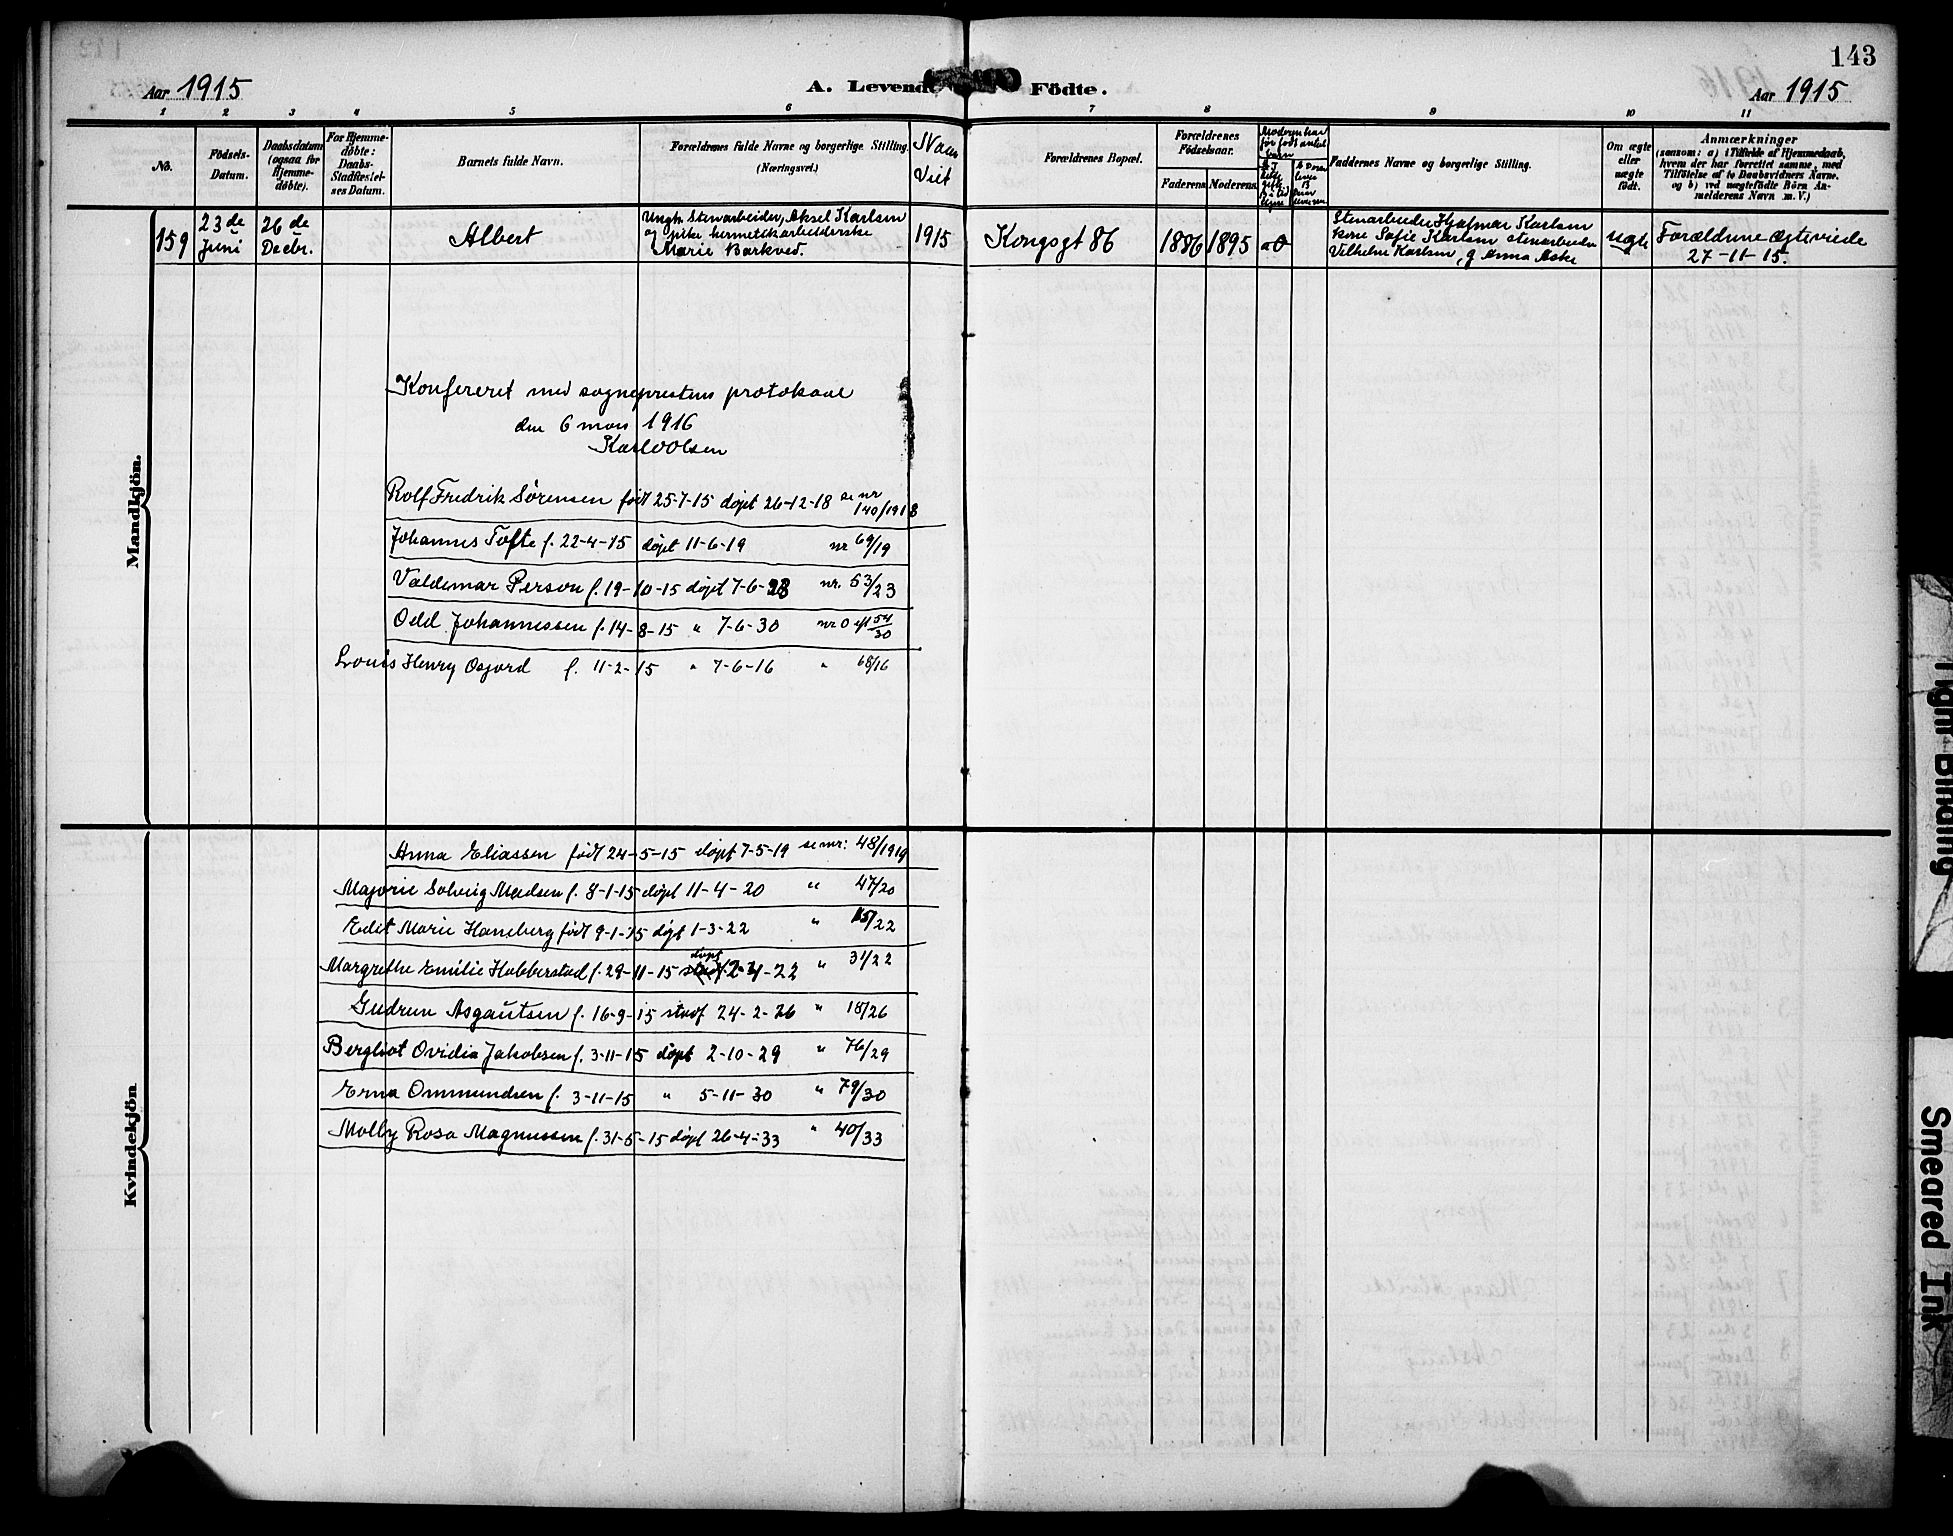 143
Aar 1915
A. Levende Födte.
Aar 1915
1 2 3 4 5 6 7 8 9 10 11
No.
Födsels-
Datum.
Daabsdatum
(ogsaa for
Hjemme-
døbte).
For Hjemme-
døbte:
Daabs-
Stadfæstel-
ses Datum.
Barnets fulde Navn.
Forældrenes fulde Navne og borgerlige Stilling
(Næringsvei.)
Forældrenes Bopæl.
Forældrenes
Födselsaar.
Faderens
Moderens
Faddernes Navne og borgerlige Stilling.
Om ægte
eller
uægte
födt.
Anmærkninger
(saasom: a) i Tilfælde af Hjemmedaab,
hvem der har forrettet samme, med
Tilföielse af to Daabsvidners Navne.
og b) ved uægtefödte Börn An-
melderens Navn m. V.)
Mandkjön.
159
23de
Juni
26de
Decbr.
Albert
Ungk. Stenarbeider, Aksel Karlsen
og pike hermetikarbeiderske
Marie Barkved.
1915
Kongsgt 86
1886
1895
Stenarbeider Hjalmar Karlsen
kone Sofie Karlsen stenarbeider
Vilhelm Karlsen, g Anna Aske
uegte
Forældrene ægteviede
27-11-15.
Konfereret med sogneprestens protokaal
den 6 mars 1916
Karl O Olsen
Rolf Fredrik Sørensen født 25-7-15 døpt 26-12-18 se nr 140/1918
Johannes Tofte f. 22-4-15 døpt 11-6-19 nr 69/19
Valdemar Person f. 19-10-15 døpt 7-6-23 nr. 53/23
Odd Johannessen f. 14-8-15 " 7-6-30 nr 54/30
Louis Henry Osjord f. 11-2-15 " 7-6-16 " 68/16
Kvindekjön
Anna Eliassen født 24-5-15 døpt 7-5-19 se nr: 48/1919
Majorie Solveig Madsen f. 8-1-15 døpt 11-4-20 " 47/20
Edit Marie Haneberg født 9-1-15 døpt 1-3-22 " 15/22
Margrethe Emilie Hobberstad f. 29-11-15 døpt 2-4-22 " 31/22
Gudrun Asgautsen f. 16-9-15 stadf 24-2-26 " 18/26
Bergliot Ovidia Jakobsen f. 3-11-15 døpt 2-10-29 " 76/29
Erna Ommundsen f. 3-11-15 " 5-11-30 " 79/30
Molly Rosa Magnussen f. 31-5-15 døpt 26-4-33 " 40/33
Tight Binding
Smeared Ink